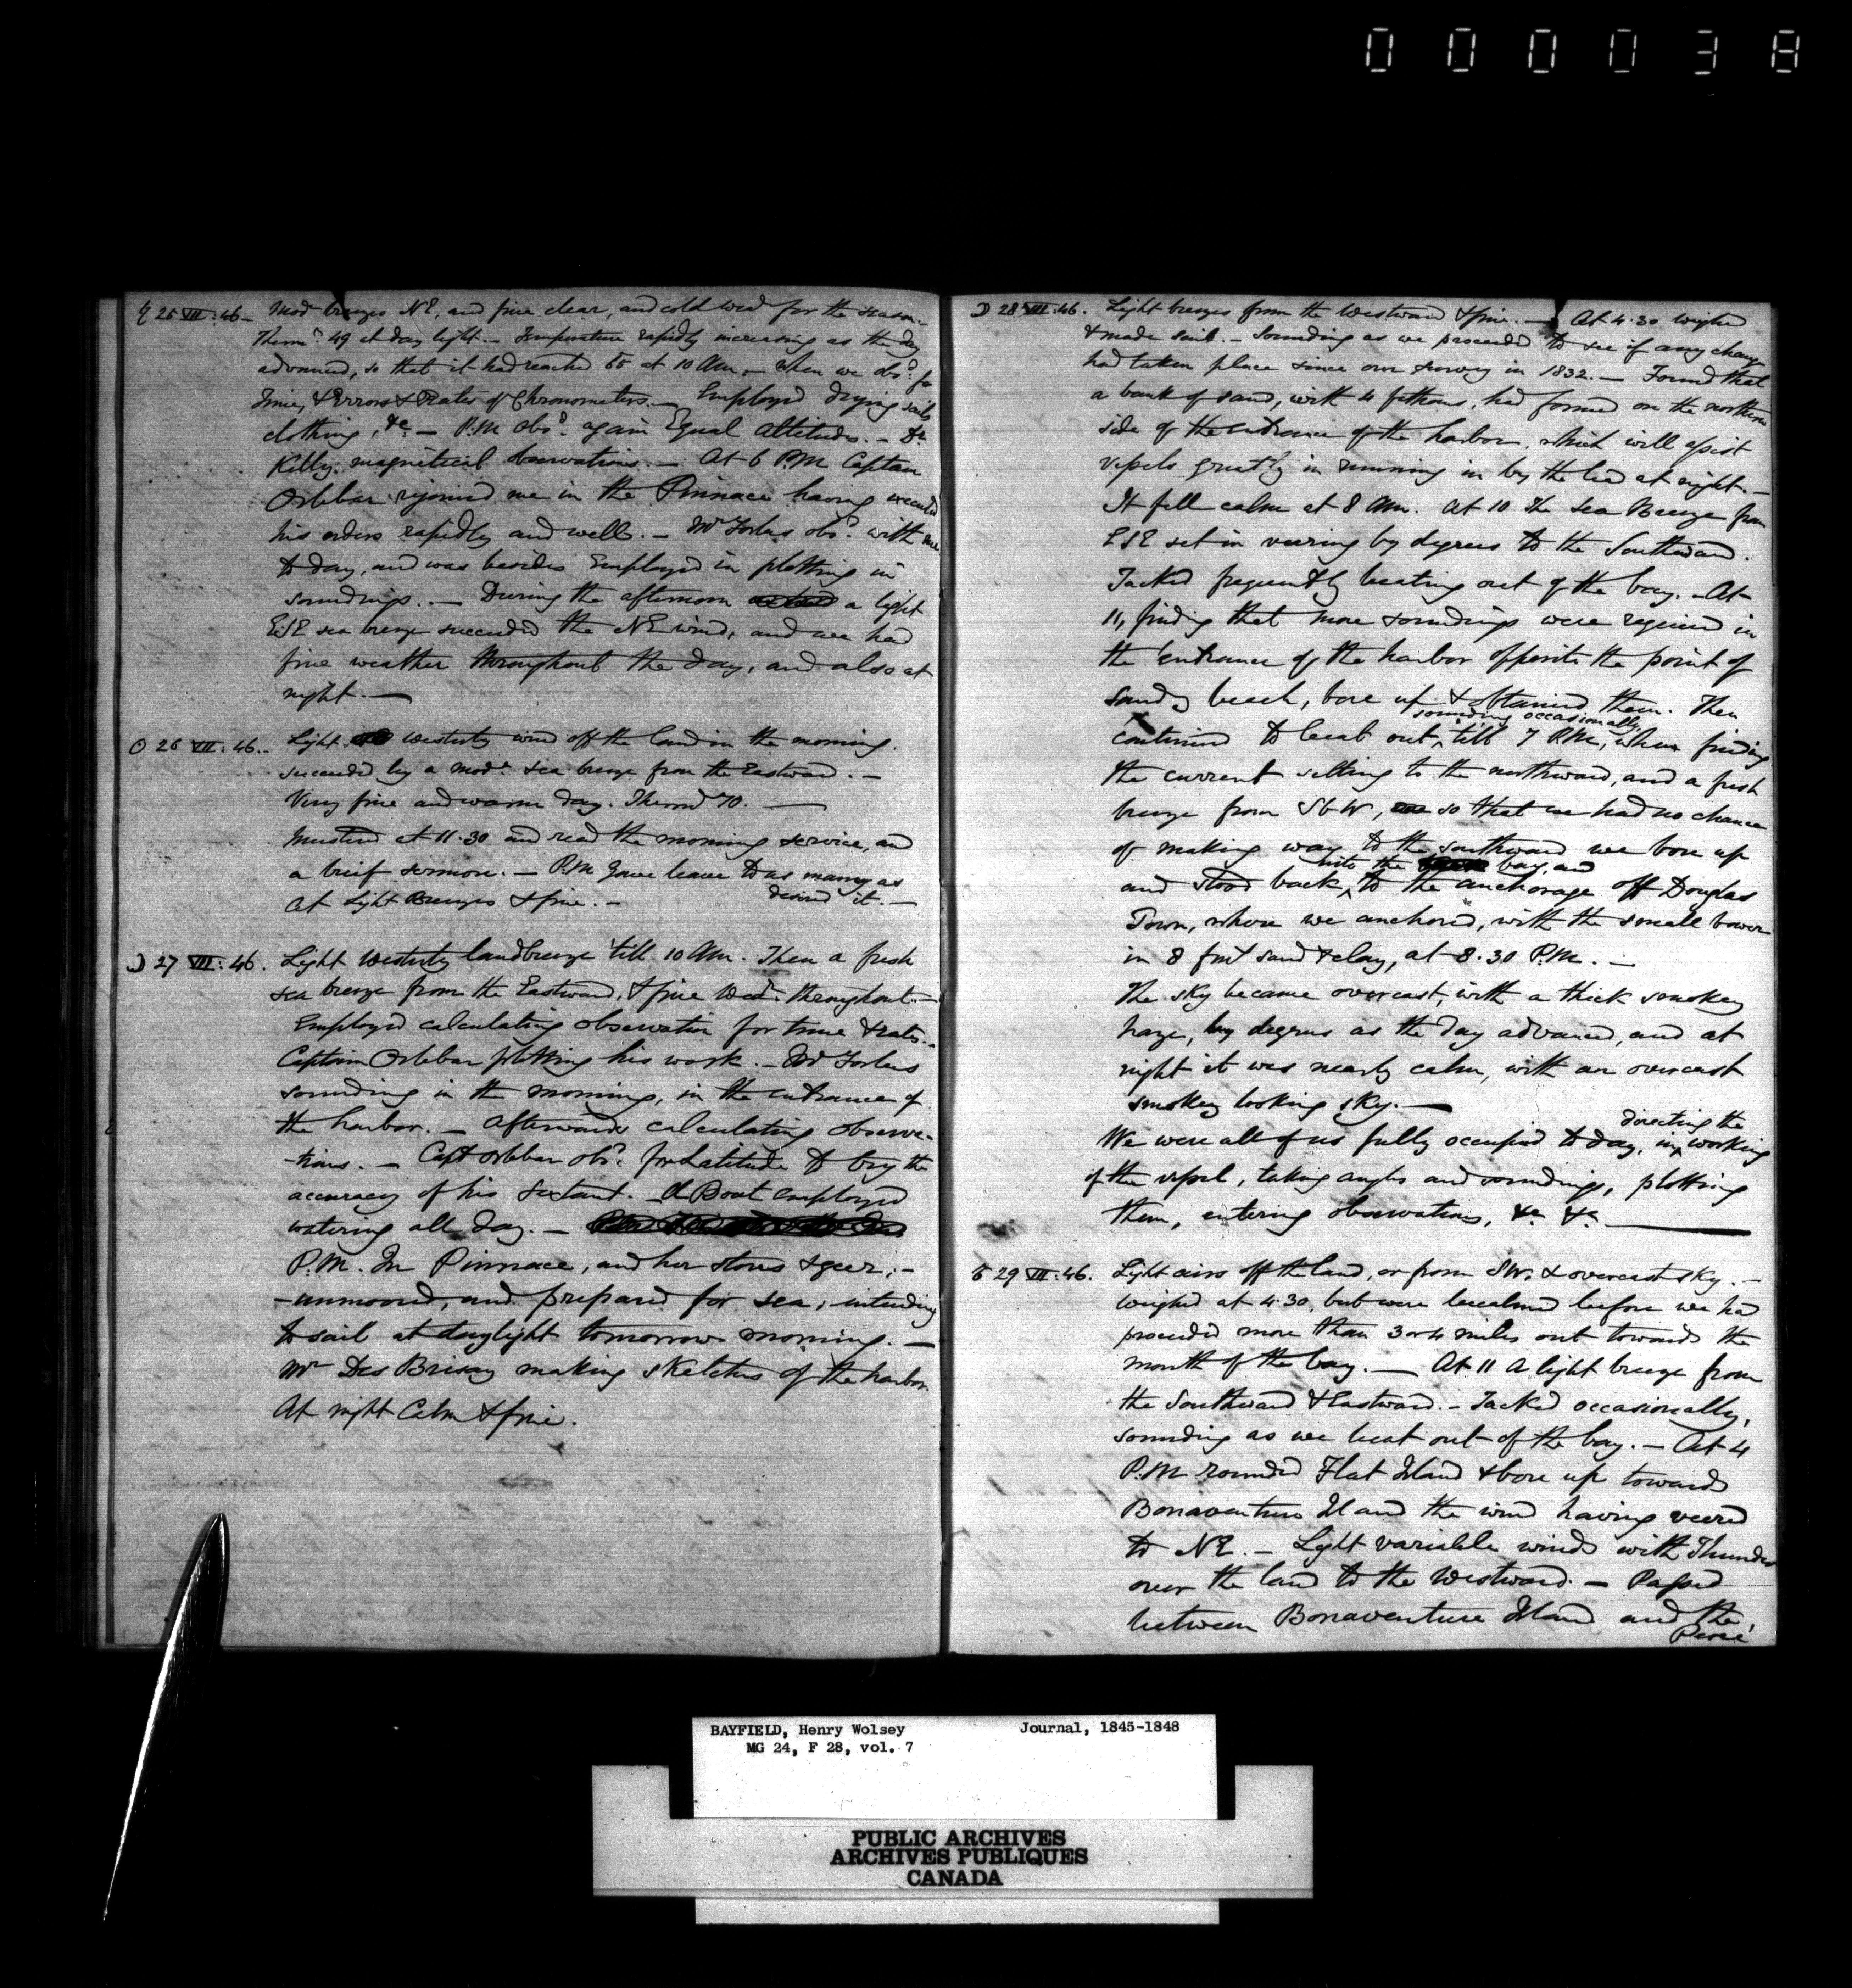 000038
♄ 25 VII: 46– Mod. breezes NE, and fine clear, and cold wea.r for the season.–
Therm.r 49 at day light.– Temperature rapidly increasing as the day
advanced, so that it had reached 65 at 10 AM.– when we obs.d for
Time, & Errors & Rates of Chronometers.– Employed drying sails
clothing, &c.– P.M obs.d again Equal Altitudes.– Dr
Kelly magnetical observations.– At 6 P.M Captain
Orlebar rejoined me in the Pinnace having executed
his orders rapidly and well.– Mr Forbes obs.d with me
to day, and was besides Employed in plotting in
soundings.– During the afternoon a light
ESE sea breeze succeeded the NE wind, and we had
fine weather throughout the day, and also at
night.–
☉ 26 VII: 46.– Light westerly wind off the land in the morning.
succeeded by a mod.e sea breeze from the Eastward.–
Very fine and warm day. Therm 70.–
Mustered at 11.30 and read the morning service, and
a brief sermon.– P.M Gave leave to as many as
desired it.–
At Light Breezes & fine.–
☽ 27 VII: 46. Light Westerly land breeze till 10 AM. Then a fresh
sea breeze from the Eastward, & fine wea.r throughout.–
Employed calculating observation for time & rates.–
Captain Orlebar plotting his work.– Mr Forbes
sounding in the morning, in the entrance of
the harbor.– Afterwards calculating observa-
-tions.– Capt Orlebar obs.d for Latitude to try the
accuracy of his Sextant. A Boat employed
watering all day.–
P.M. In Pinnace, and her stores & geer;–
–unmoored, and prepared for sea, intending
to sail at daylight tomorrow morning.–
Mr Des Brisay making sketches of the harbor.
At night Calm & fine.
☽ 28 VII: 46. Light breezes from the Westward & fine.– At 4.30 weighed
& made sail.– Sounding as we proceeded to see if any change
had taken place since our survey in 1832.– Found that
a bank of sand, with 4 fathoms, had formed on the northern
side of the entrance of the harbor, which will assist
vessels greatly in running in by the lead at night.–
It fell calm at 8 AM. At 10 The Sea Breeze from
ESE set in veering by degrees to the Southward.
Tacked frequently beating out of the bay.– At
11, finding that more soundings were required in
the entrance of the harbor opposite the point of
Sandy beach, bore up & obtained them. Then
sounding occasionally
continued to beat out till 7 P.M, when finding
the current setting to the northward, and a fresh
breeze from SbW, so that we had no chance
of making way to the southward we bore up
into the bay, and
and stood back to the anchorage off Douglas
Town, where we anchored, with the small bower
in 8 fms sand & clay, at 8.30 P.M.–
The sky became overcast, with a thick smokey
haze, by degrees as the day advanced, and at
night it was nearly calm, with an overcast
smokey looking sky.–
directing the
We were all of us fully occupied to day, in working
of the vessel, taking angles and soundings, plotting
them, entering observations, &c &c
29 VII: 46. Light airs off the land, or from SW. & overcast sky.–
Weighed at 4.30, but were becalmed before we had
proceeded more than 3 or 4 miles out towards the
mouth of the bay.– At 11 A light breeze from
the Southward & Eastward.– Tacked occasionally,
sounding as we beat out of the bay.– At 4
P.M rounded Flat Island & bore up towards
Bonaventure Island the wind having veered
to NE.– Light variable winds with Thunder
over the land to the Westward.– Passed
between Bonaventure Island and the
Percé
BAYFIELD, Henry Wolsey Journal, 1845-1848
MG 24, F 28, vol. 7
PUBLIC ARCHIVES
ARCHIVES PUBLIQUES
CANADA